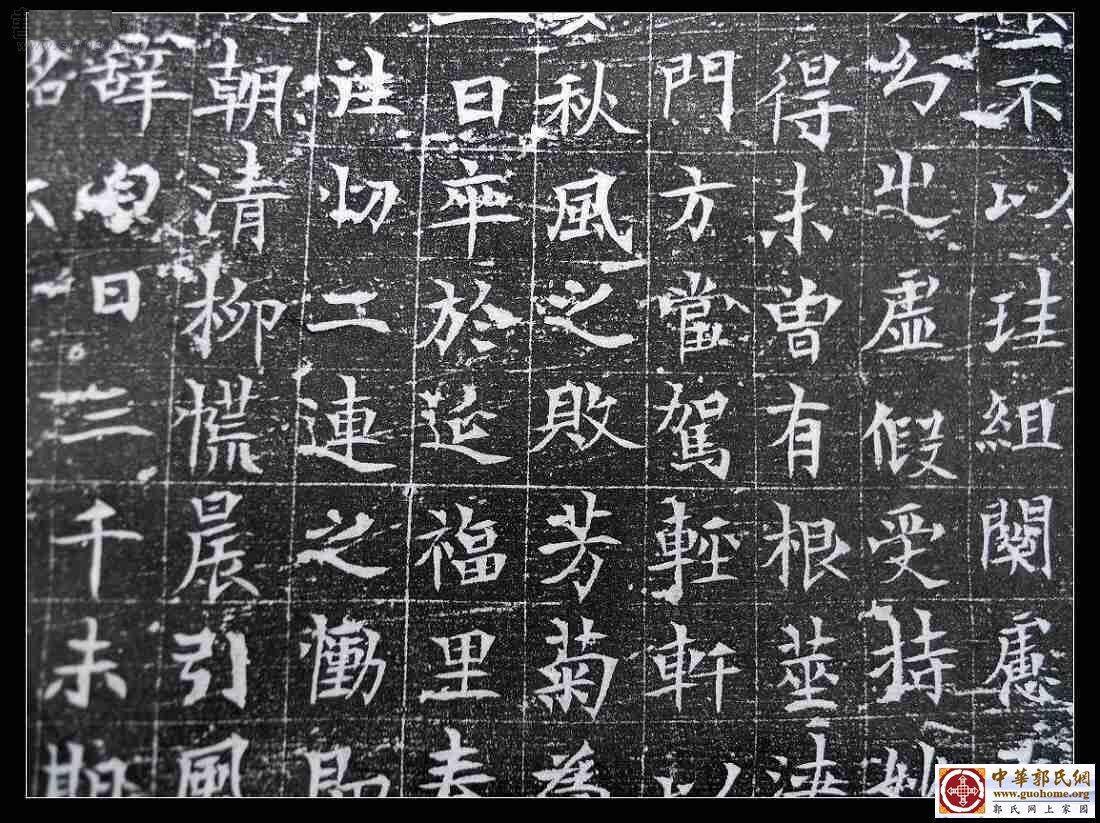 不以珪組關慮
出虛假受持妙
得未曾有根莖法
門方當駕輕軒以
秋風之敗芳菊為
日卒於延福里春
往切二連之慟
朝清柳慌晨引風
辭日三千未期
中華郭氏網
www.guohome.org
郭氏网上家园